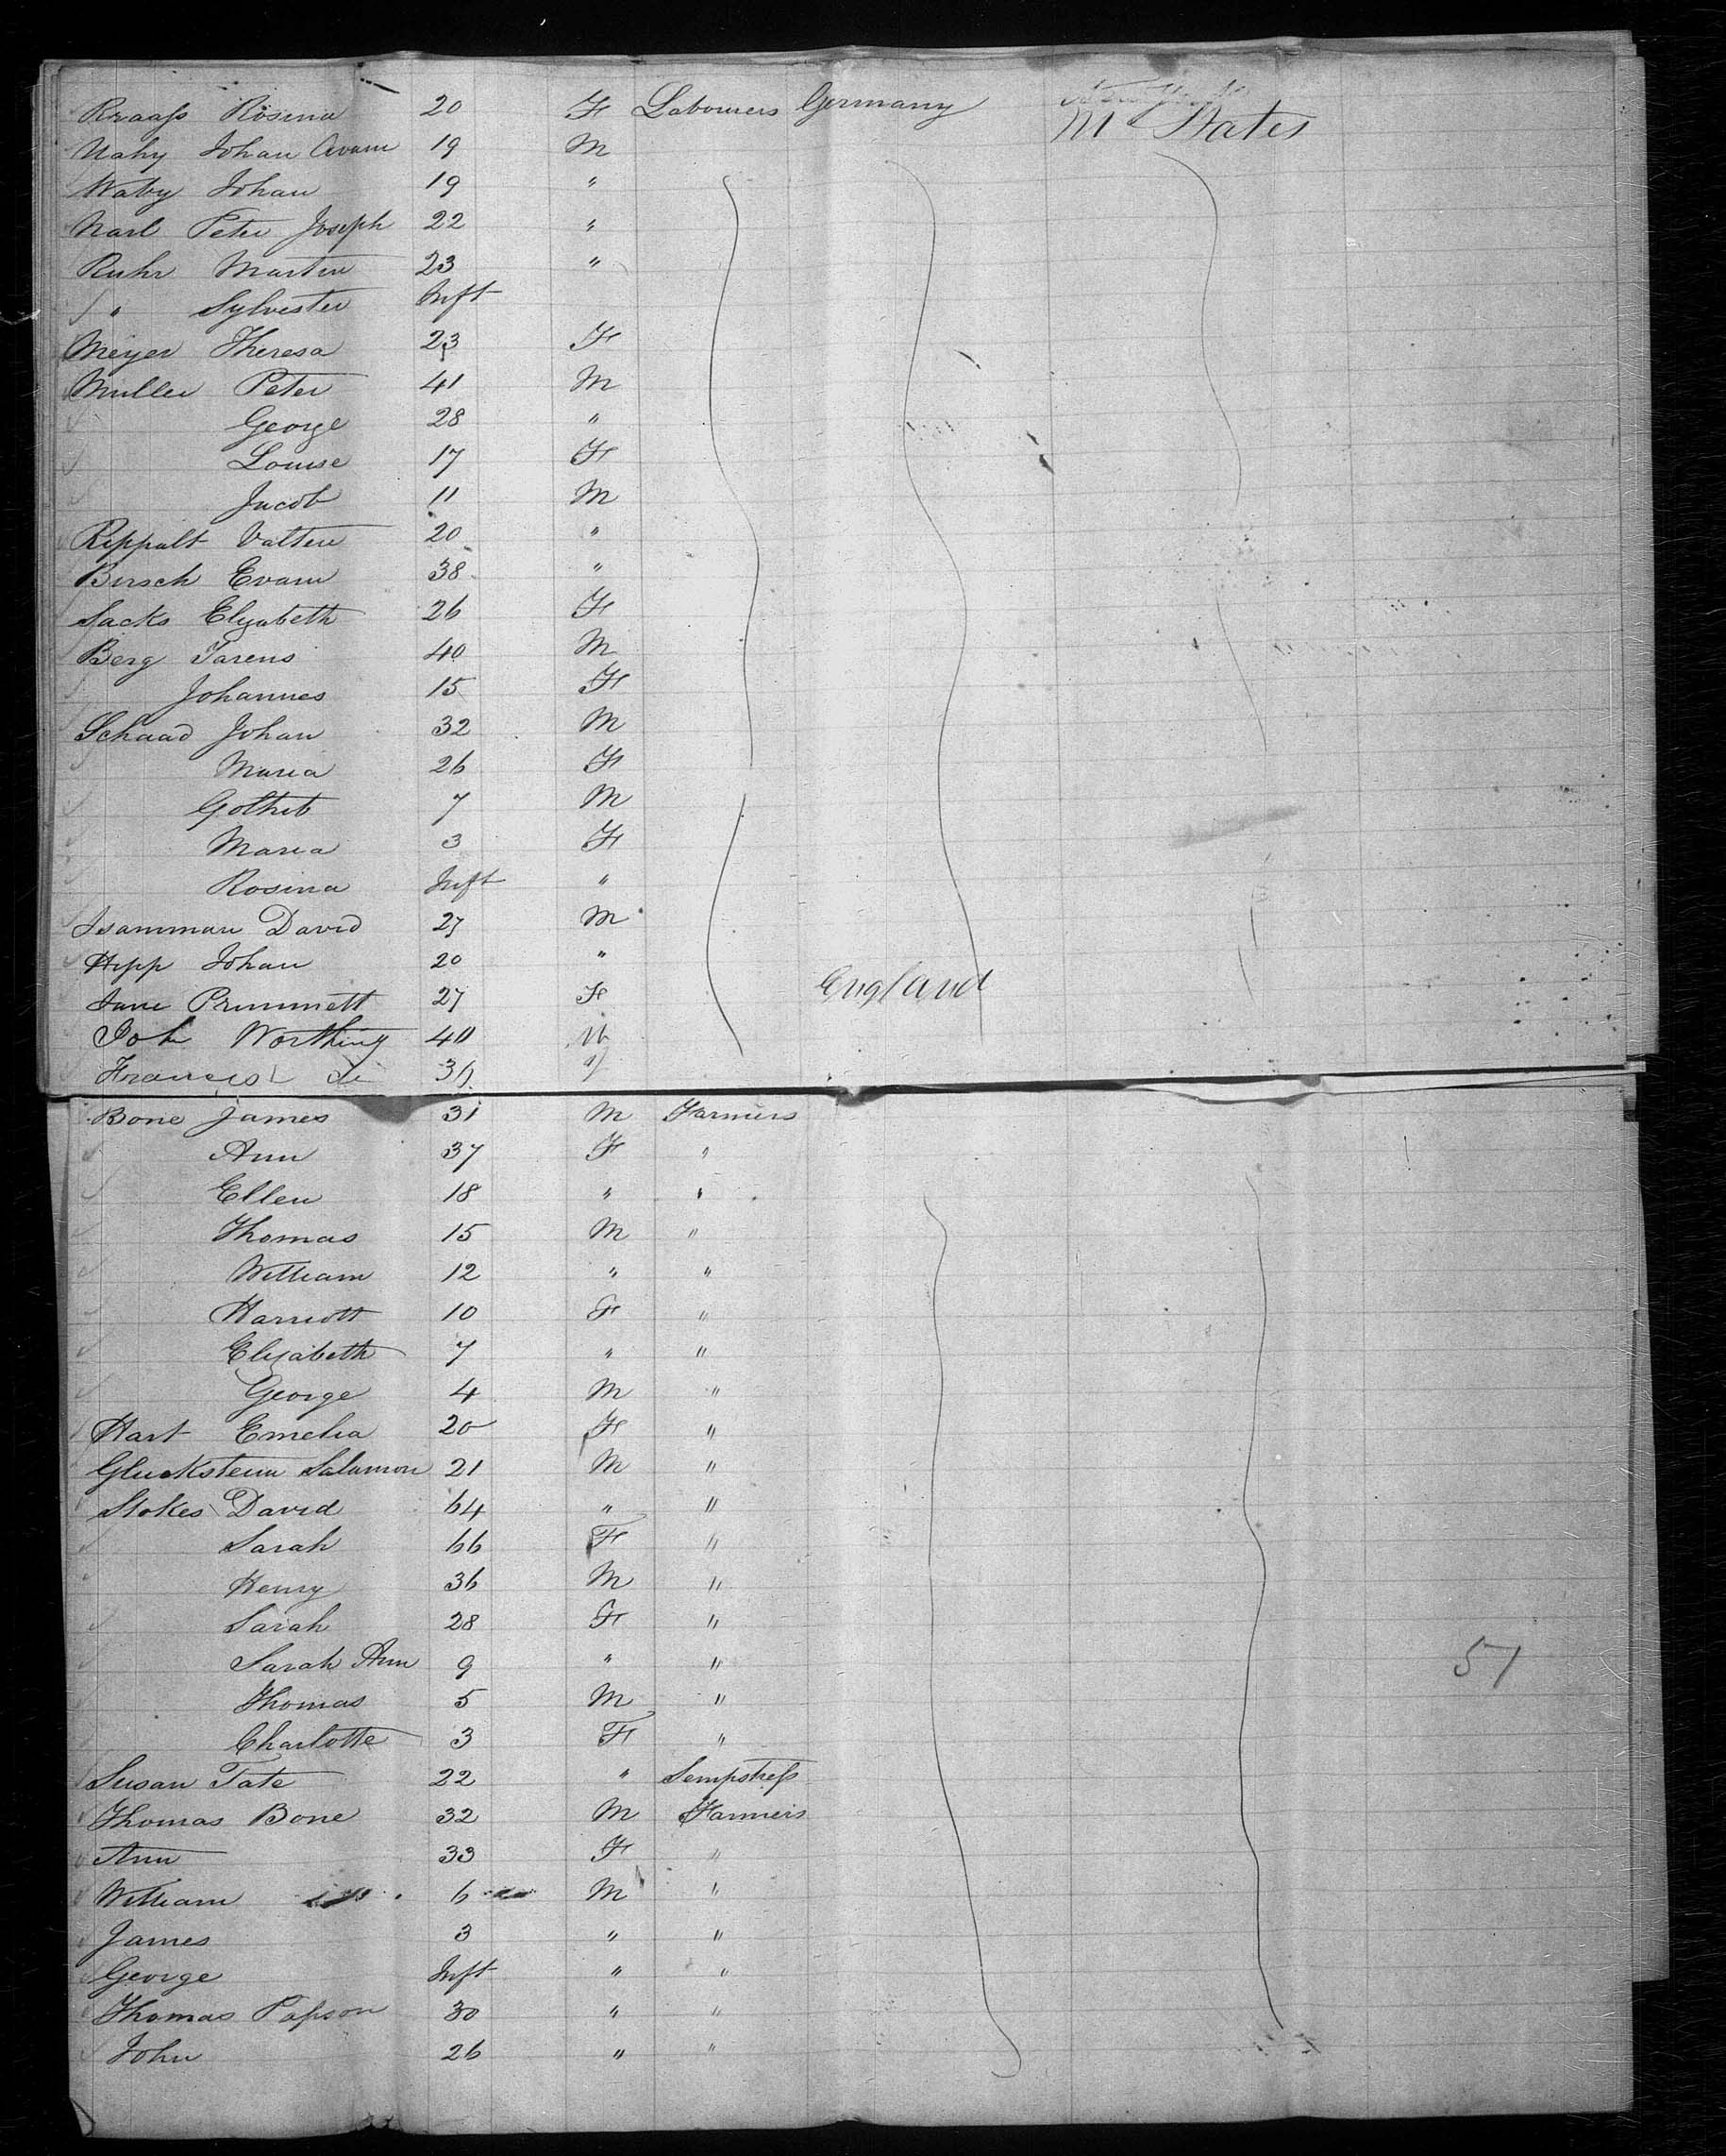 Kraass Rosina 20 F Labourers Germany
Nahy Johan Avam 19 M Ud States
Waby Johan 19 "
Narl Peter Joseph 22 "
Ruhr Martin 23 "
" Sylvester Inft
Meyer Theresa 23 F
Muller Peter 41 M
George 28 "
Louise 17 F
Jacob 11 M
Rippalt Valten 20 "
Birsch Evam 38 "
Sacks Elizabeth 26 F
Berg Jarens 40 M
Johannes 15 F
Schaad Johan 32 M
Maria 26 F
Gothib 7 M
Maria 3 F
Rosina Inft "
Isamman David 27 M
Hipp Johan 20 "
Jane Primmett 27 F England
Joh Worthing 40 M
Frances do
Bone James 31 M Farmers
Ann 37 F "
Ellen 18 " "
Thomas 15 M "
William 12 " "
Harriott 10 F "
Elizabeth 7 " "
George 4 M "
Hart Emelia 20 F "
Gluckstein Salamon 21 M "
Stokes David 64 " "
Sarah 66 F "
Henry 36 M "
Sarah 28 F "
Sarah Ann 9 " "
57
Thomas 5 M "
Charlotte 3 F "
Susan Tate 22 " Sempstress
Thomas Bone 32 M Farmers
Ann 33 F "
William 6 M "
James 3 " "
George Inft " "
Thomas Papson 30 " "
John 26 " "